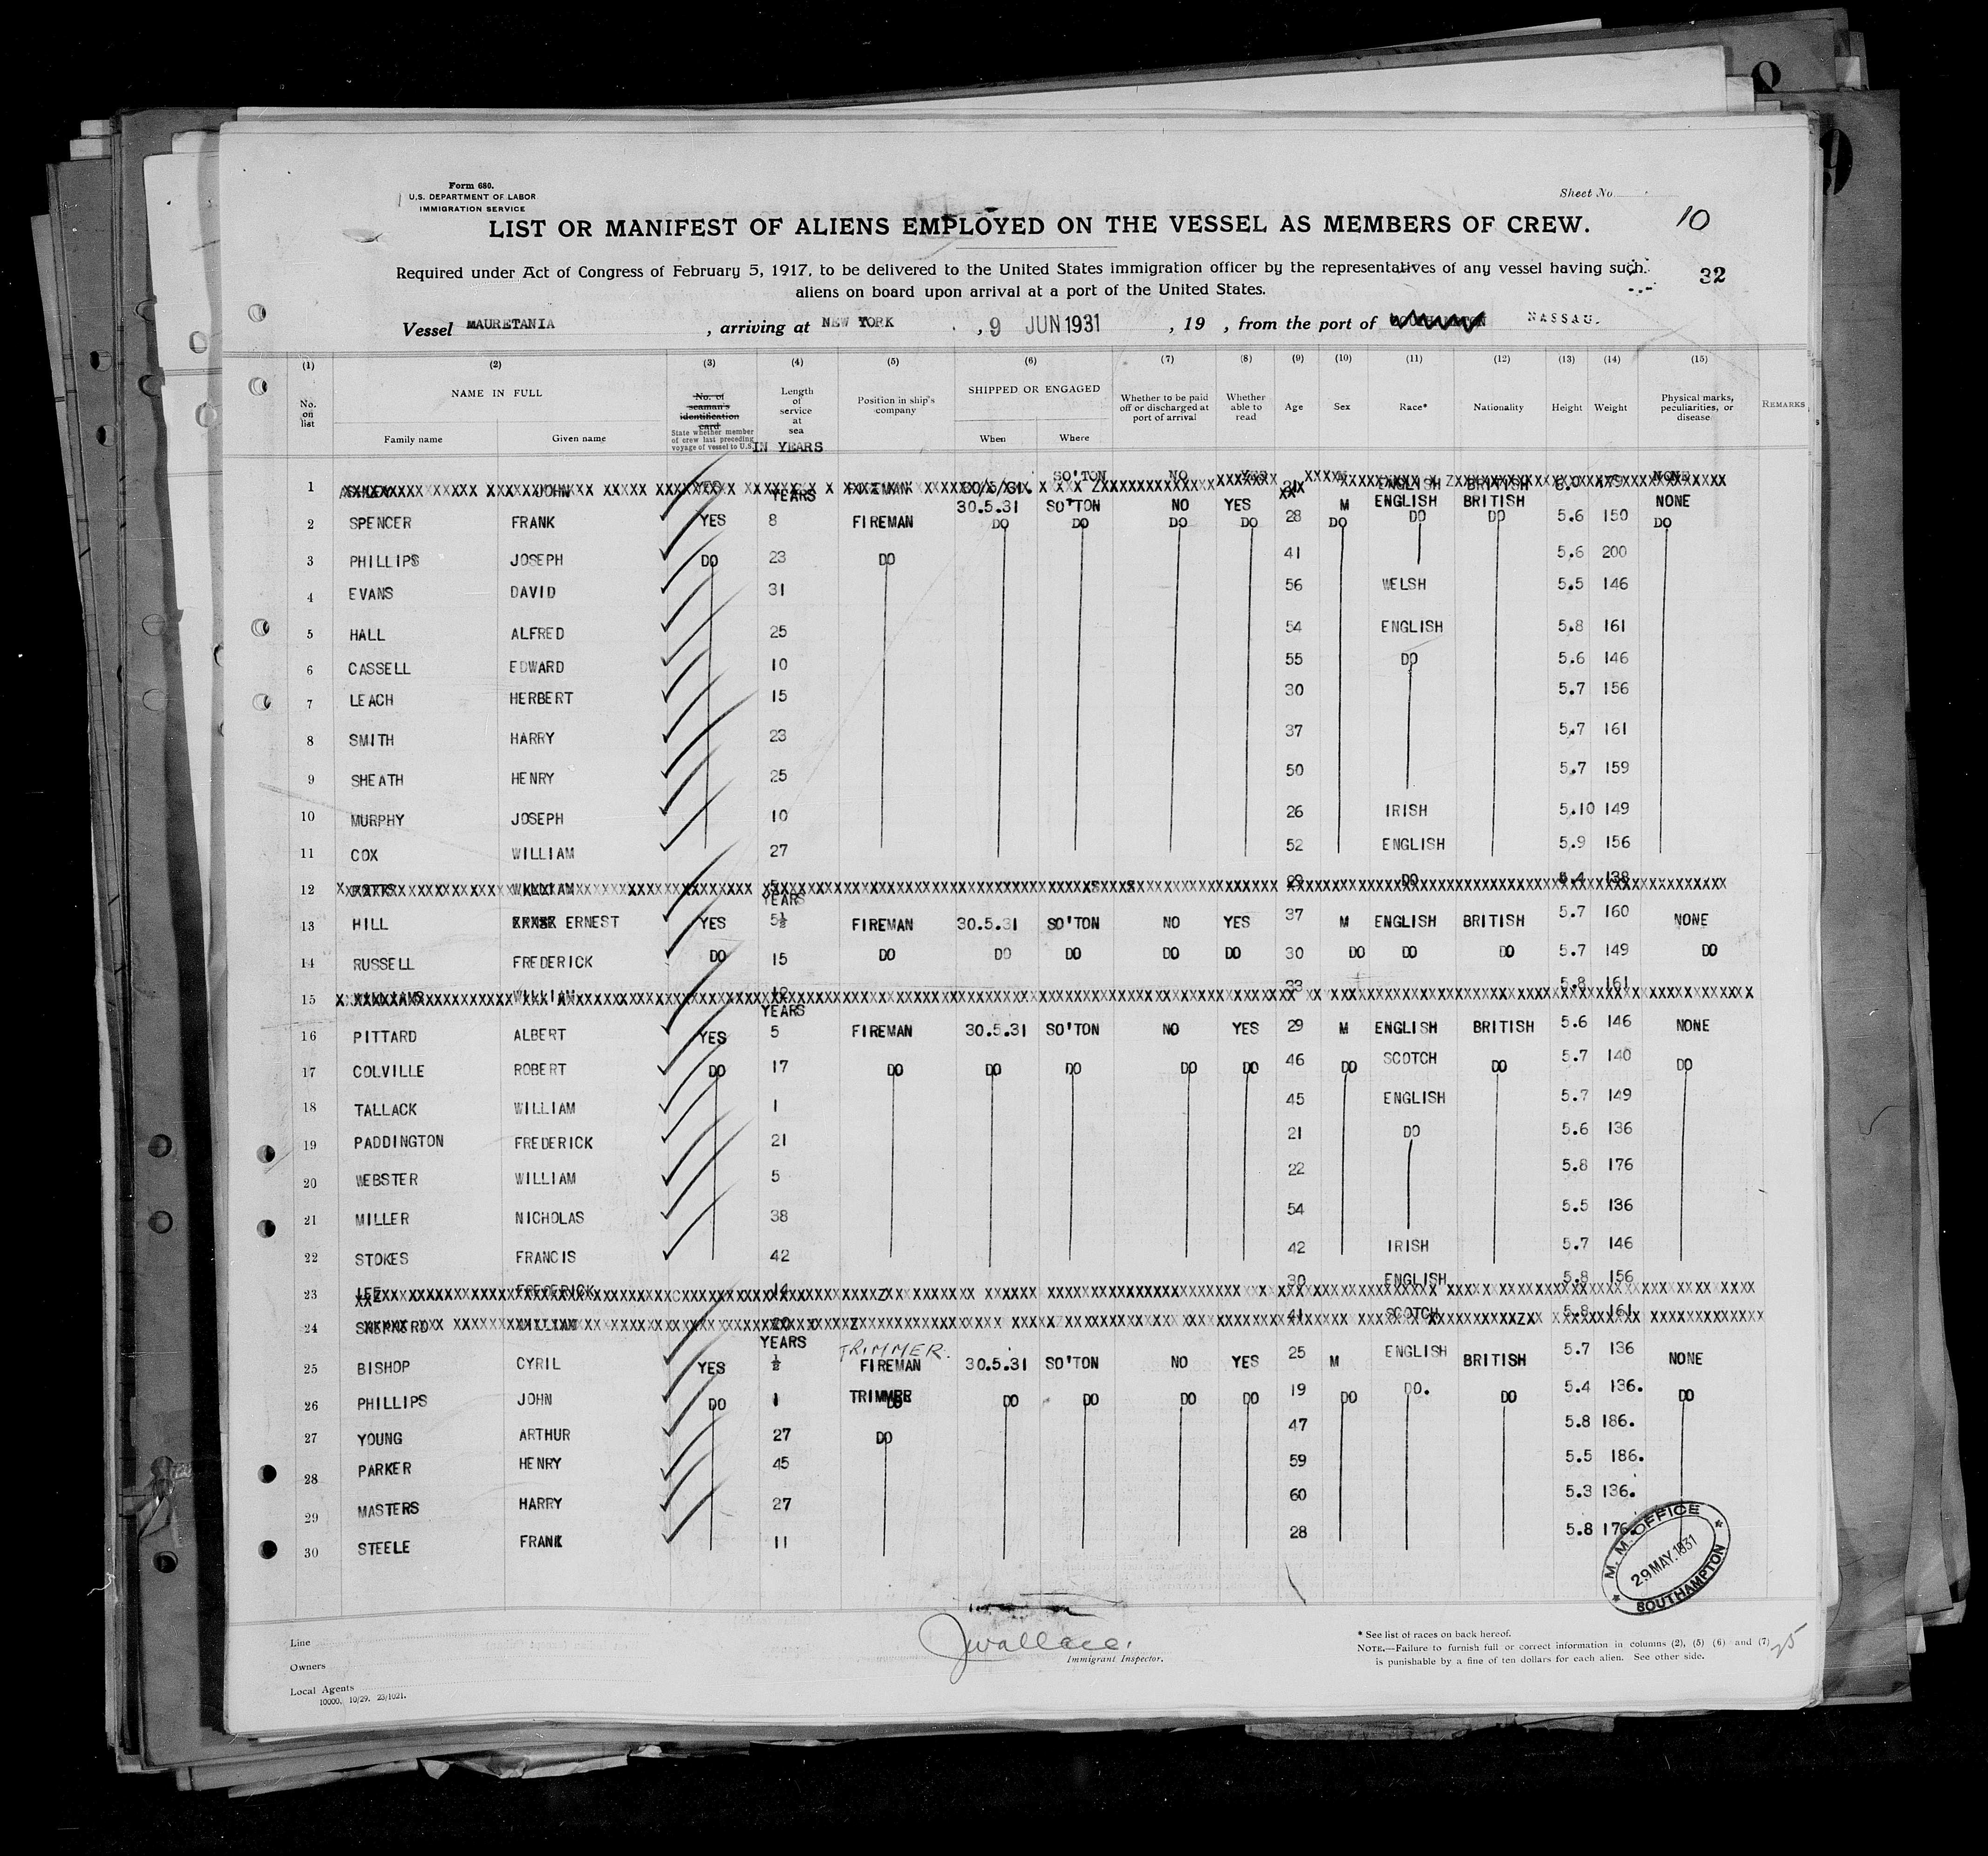 Form 680.
U.S. DEPARTMENT OF LABOR
IMMIGRATION SERVICE
Sheet No
LIST OR MANIFEST OF ALIENS EMPLOYED ON THE VESSEL AS MEMBERS OF CREW.
10
Required under Act of Congress of February 5, 1917, to be delivered to the United States immigration officer by the representatives of any vessel having such
aliens on board upon arrival at a port of the United States.
32
Vessel MAURETANIA , arriving at NEW YORK , 9 JUN 1931 , 19 , from the port of NASSAU.
(1) (2) (3) (4) (5) (6) (7) (8) (9) (10) (11) (12) (13) (14) (15)
No. on list NAME IN FULL Family name Given name No. of seaman's identification card State whether member of crew last preceding voyage of vessel to U.S. Length of service at sea IN YEARS Position in ship's company SHIPPED OR ENGAGED When Where Whether to be paid off or discharged at port of arrival Whether able to read Age Sex Race* Nationality Height Weight Physical marks, peculiarities, or disease REMARKS
1 JOHN YES YEARS FIREMAN 30/5/31. SO'TON NO YES 31 M ENGLISH BRITISH 179 NONE
30.5.31 SO'TON NO YES M ENGLISH BRITISH NONE
2 SPENCER FRANK YES 8 FIREMAN DO DO DO DO 28 DO DO DO 5.6 150 DO
3 PHILLIPS JOSEPH DO 23 DO 41 5.6 200
4 EVANS DAVID 31 56 WELSH 5.5 146
5 HALL ALFRED 25 54 ENGLISH 5.8 161
6 CASSELL EDWARD 10 55 DO 5.6 146
7 LEACH HERBERT 15 30 5.7 156
8 SMITH HARRY 23 37 5.7 161
9 SHEATH HENRY 25 50 5.7 159
10 MURPHY JOSEPH 10 26 IRISH 5.10 149
11 COX WILLIAM 27 52 ENGLISH 5.9 156
12 WILLIAM 5 29 DO 5.4 138
YEARS
13 HILL ERNEST YES 5½ FIREMAN 30.5.31 SO'TON NO YES 37 M ENGLISH BRITISH 5.7 160 NONE
14 RUSSELL FREDERICK DO 15 DO DO DO DO DO 30 DO DO DO 5.7 149 DO
15 WILLIAMS WILLIAM 12 33 5.8 161
YEARS
16 PITTARD ALBERT YES 5 FIREMAN 30.5.31 SO'TON NO YES 29 M ENGLISH BRITISH 5.6 146 NONE
17 COLVILLE ROBERT DO 17 DO DO DO DO DO 46 DO SCOTCH DO 5.7 140 DO
18 TALLACK WILLIAM 1 45 ENGLISH 5.7 149
19 PADDINGTON FREDERICK 21 21 DO 5.6 136
20 WEBSTER WILLIAM 5 22 5.8 176
21 MILLER NICHOLAS 38 54 5.5 136
22 STOKES FRANCIS 42 42 IRISH 5.7 146
23 LEE FREDERICK 14 30 ENGLISH 5.8 156
24 SHEPHERD WILLIAM 20 41 SCOTCH 5.8 161
YEARS TRIMMER.
25 BISHOP CYRIL YES ½ FIREMAN 30.5.31 SO'TON NO YES 25 M ENGLISH BRITISH 5.7 136 NONE
26 PHILLIPS JOHN DO 1 TRIMMER DO DO DO DO 19 DO DO. DO 5.4 136. DO
27 YOUNG ARTHUR 27 DO 47 5.8 186.
28 PARKER HENRY 45 59 5.5 186.
29 MASTERS HARRY 27 60 5.3 136.
30 STEELE FRANK 11 28 5.8 176.
M. M. OFFICE
29 MAY. 1931
SOUTHAMPTON
Line
Owners
Local Agents
10000. 10/29. 23/1021.
JWallace.
Immigrant Inspector.
* See list of races on back hereof.
NOTE.—Failure to furnish full or correct information in columns (2), (5) (6) and (7)
is punishable by a fine of ten dollars for each alien. See other side.
25